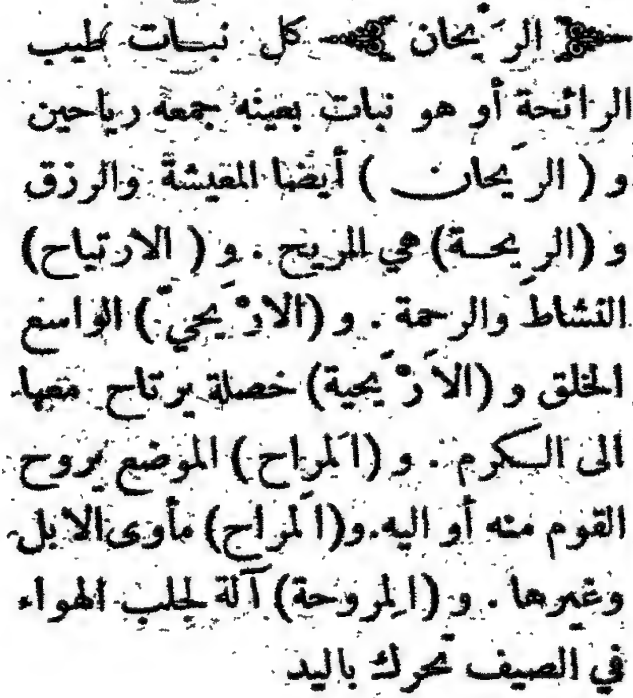 ﴿ الرَّيحان ﴾ كل نبات طيب
الرائحة أو هو نبات بعينه جمعه رياحين
و ( الريحان ) أيضا المعيشة والرزق
و (الريحة) هي الريح . و ( الارتياح)
النشاط والرحمة . و (الارْيحيّ) الواسع
الخلق و (الأرْيَحية) خصلة يرتاح معها
الى الكرم . و (المَراح) الموضع يروح
القوم منه أو اليه . و(المُراح) مأوى الابل
وغيرها . و (المِروحة) آلة لجلب الهواء
في الصيف تحرك باليد